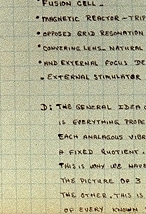 · FUSION CELL -
· MAGNETIC REACTOR - TRIP
· OPPOSED GRID RESONATION
· CONVERING LENS - NATURAL
· AND EXTERNAL FOCUS DE
- EXTERNAL STIMULATOR
D: THE GENERAL IDEA O
IS EVERYTHING PROPE
EACH ANALAGOUS VIBR
A FIXED QUOTIENT.
THIS IS WHY WE HAVE
THE PICTURE OF 3
THE OTHER. THIS IS
OF EVERY KNOWN